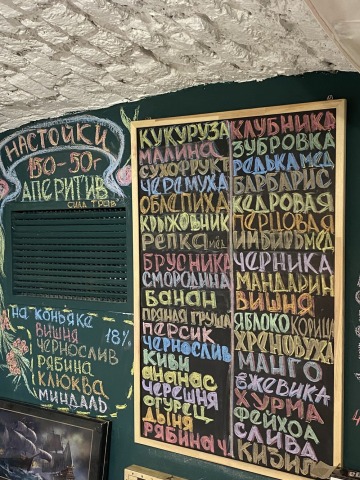 НАСТОЙКИ
150-50г
АПЕРИТИВ
СИЛА ТРАВ
НА КОНЬЯКЕ
ВИШНЯ 18%
ЧЕРНОСЛИВ
РЯБИНА
КЛЮКВА
МИНДАЛЬ
КУКУРУЗА
МАЛИНА
СУХОФРУКТ
ЧЕРЕМУХА
ОБЛЕПИХА
КРЫЖОВНИК
РЕПКА МЕД
БРУСНИКА
СМОРОДИНА
БАНАН
ПРЯНАЯ ГРУША
ПЕРСИК
ЧЕРНОСЛИВ
КИВИ
АНАНАС
ЧЕРЕШНЯ
ОГУРЕЦ
ДЫНЯ
РЯБИНА Ч.
КЛУБНИКА
ЗУБРОВКА
РЕДЬКА МЕД
БАРБАРИС
КЕДРОВАЯ
ПЕРЦОВАЯ
ИМБИРЬ МЕД
ЧЕРНИКА
МАНДАРИН
ВИШНЯ
ЯБЛОКО КОРИЦА
ХРЕНОВУХА
МАНГО
ЕЖЕВИКА
ХУРМА
ФЕЙХОА
СЛИВА
КИЗИЛ